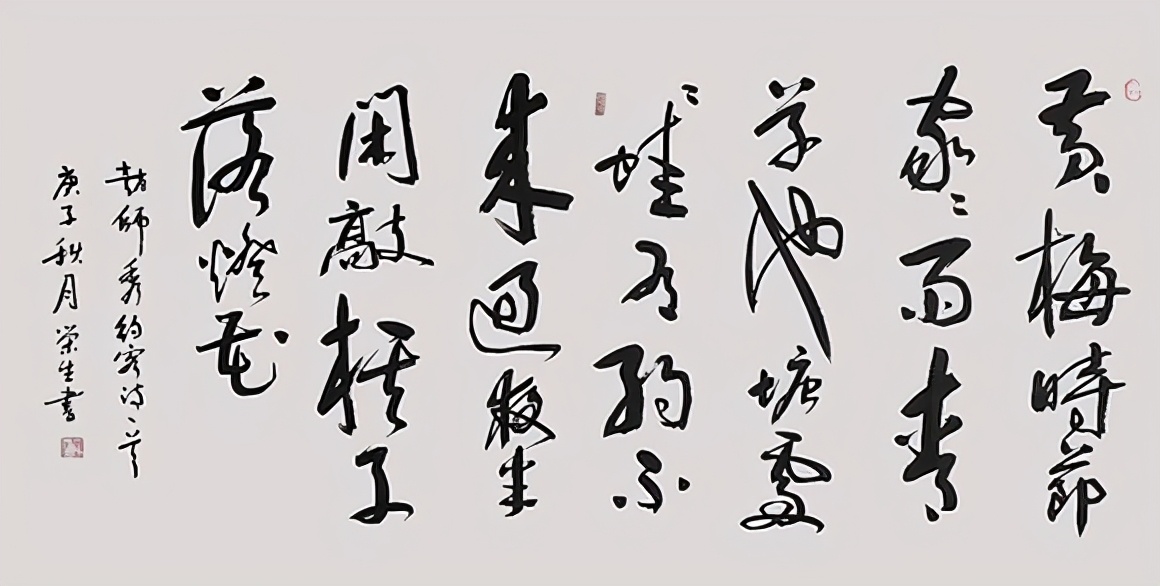 黄梅時節
家〻雨青
草池塘處
〻蛙有約不
来過夜半
閑敲棋子
落燈花
趙師秀約客诗一首
庚子秋月荣生書